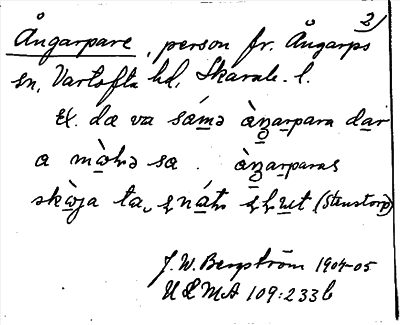 2)
Ångarpare, person fr. Ångarps
sn, Vartofta hd, Skarab. l.
Ex. dæ va sámə àŋarpara dar
a mə̀ho sa. àŋarparas
skòja ta
(Stenstorp)
J. W. Bergström 1904-05
ULMA 109:233 b